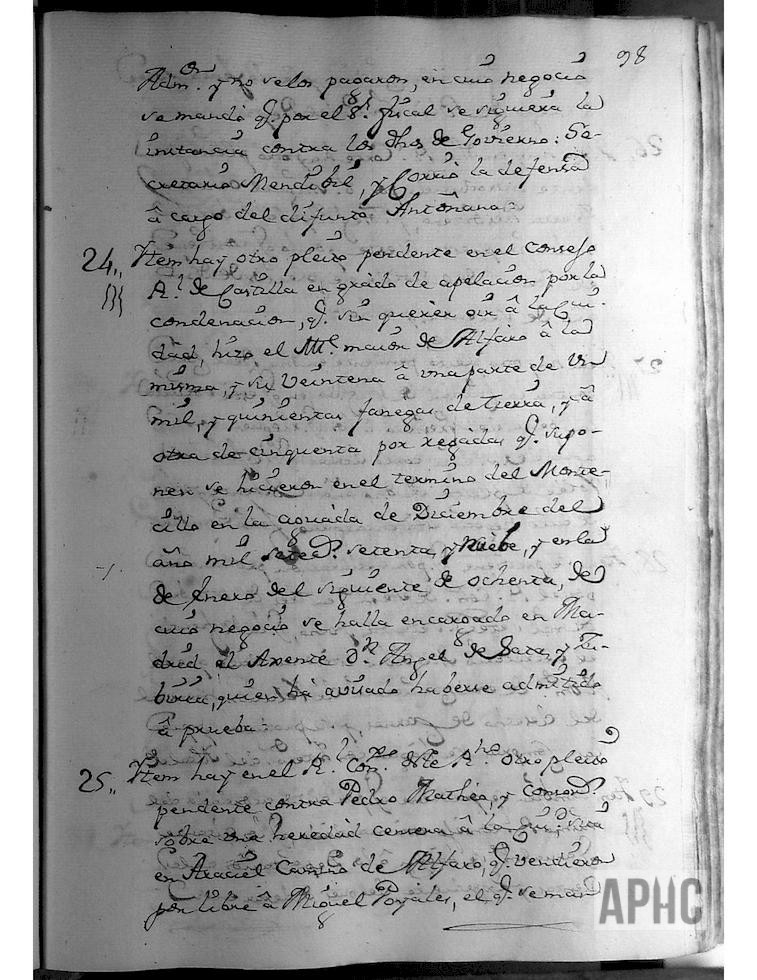 98
Adm.on y no se los pagaron, en cuio negocio
se mandó q.e por el S.r fiscal se siguiera la
instancia contra los dhos de Govierno: Se-
cretario Mendibil, y Corrio la defensa
â cargo del difunto Antoñana=
24,, Ytem hay otro pleito pendente en el Consejo
R.l de Castilla en grado de apelacion por la
condenacion, q.e sin querer oir â la Ciu-
dad, hizo el Alc.e maior de Alfaro â la
misma, y su Veintena â una parte de un
mil, y quinientas fanegas de tierra, y â
otra de cinquenta por regadas q.e supo-
nen se hicieron en el termino del Monte-
cillo en la aguada de Diciembre del
año mil setec.s setenta, y Nuebe, y en la
de Enero del siguiente de ochenta, de
cuio negocio se halla encargado en Ma-
drid el Axente D.n Angel de Sata, y Zu-
biria, quien ha avisado haberse admitido
â prueba=
25,, Ytem hay en el R.l Con. este R.no otro pleito
pendente contra Pedro Matheo, y consor.s
sobre una heredad cencera â la Ciu.d sita
en Araciel Camino de Alfaro, q.e vendieron
por libre â Miguel Poyales, el q.e se man
APHC